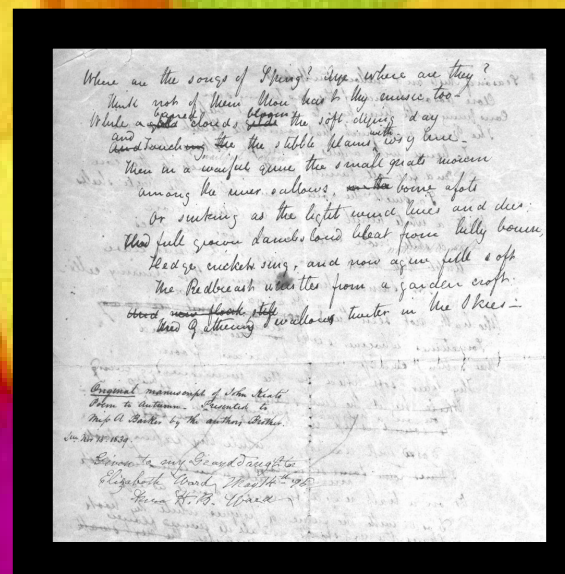 Where are the songs of Spring? Aye where are they?
Think not of them thou hast thy music too—
While a gold barred clouds gilds bloom the soft dying day
And and Touching the the stubble plains with rosy hue—
Then in a wailful quire the small gnats mourn
among the river sallows, on the borne afots
Or sinking as the light wind lives and dies;
And full grown Lambs loud bleat from hilly bourne,
Hedge crickets sing, and now again full soft
The Redbreast whistles from a garden croft:
And new flock still
And Gathering Swallows twitter in the Skies—
Original manuscript of John Keats
Poem to Autumn. Presented to
Miss A Barker by the authors Brother.
Nov 15. 1839
Given to my Granddaughter
Elizabeth Ward May 14th '96
Anna H. B. Ward